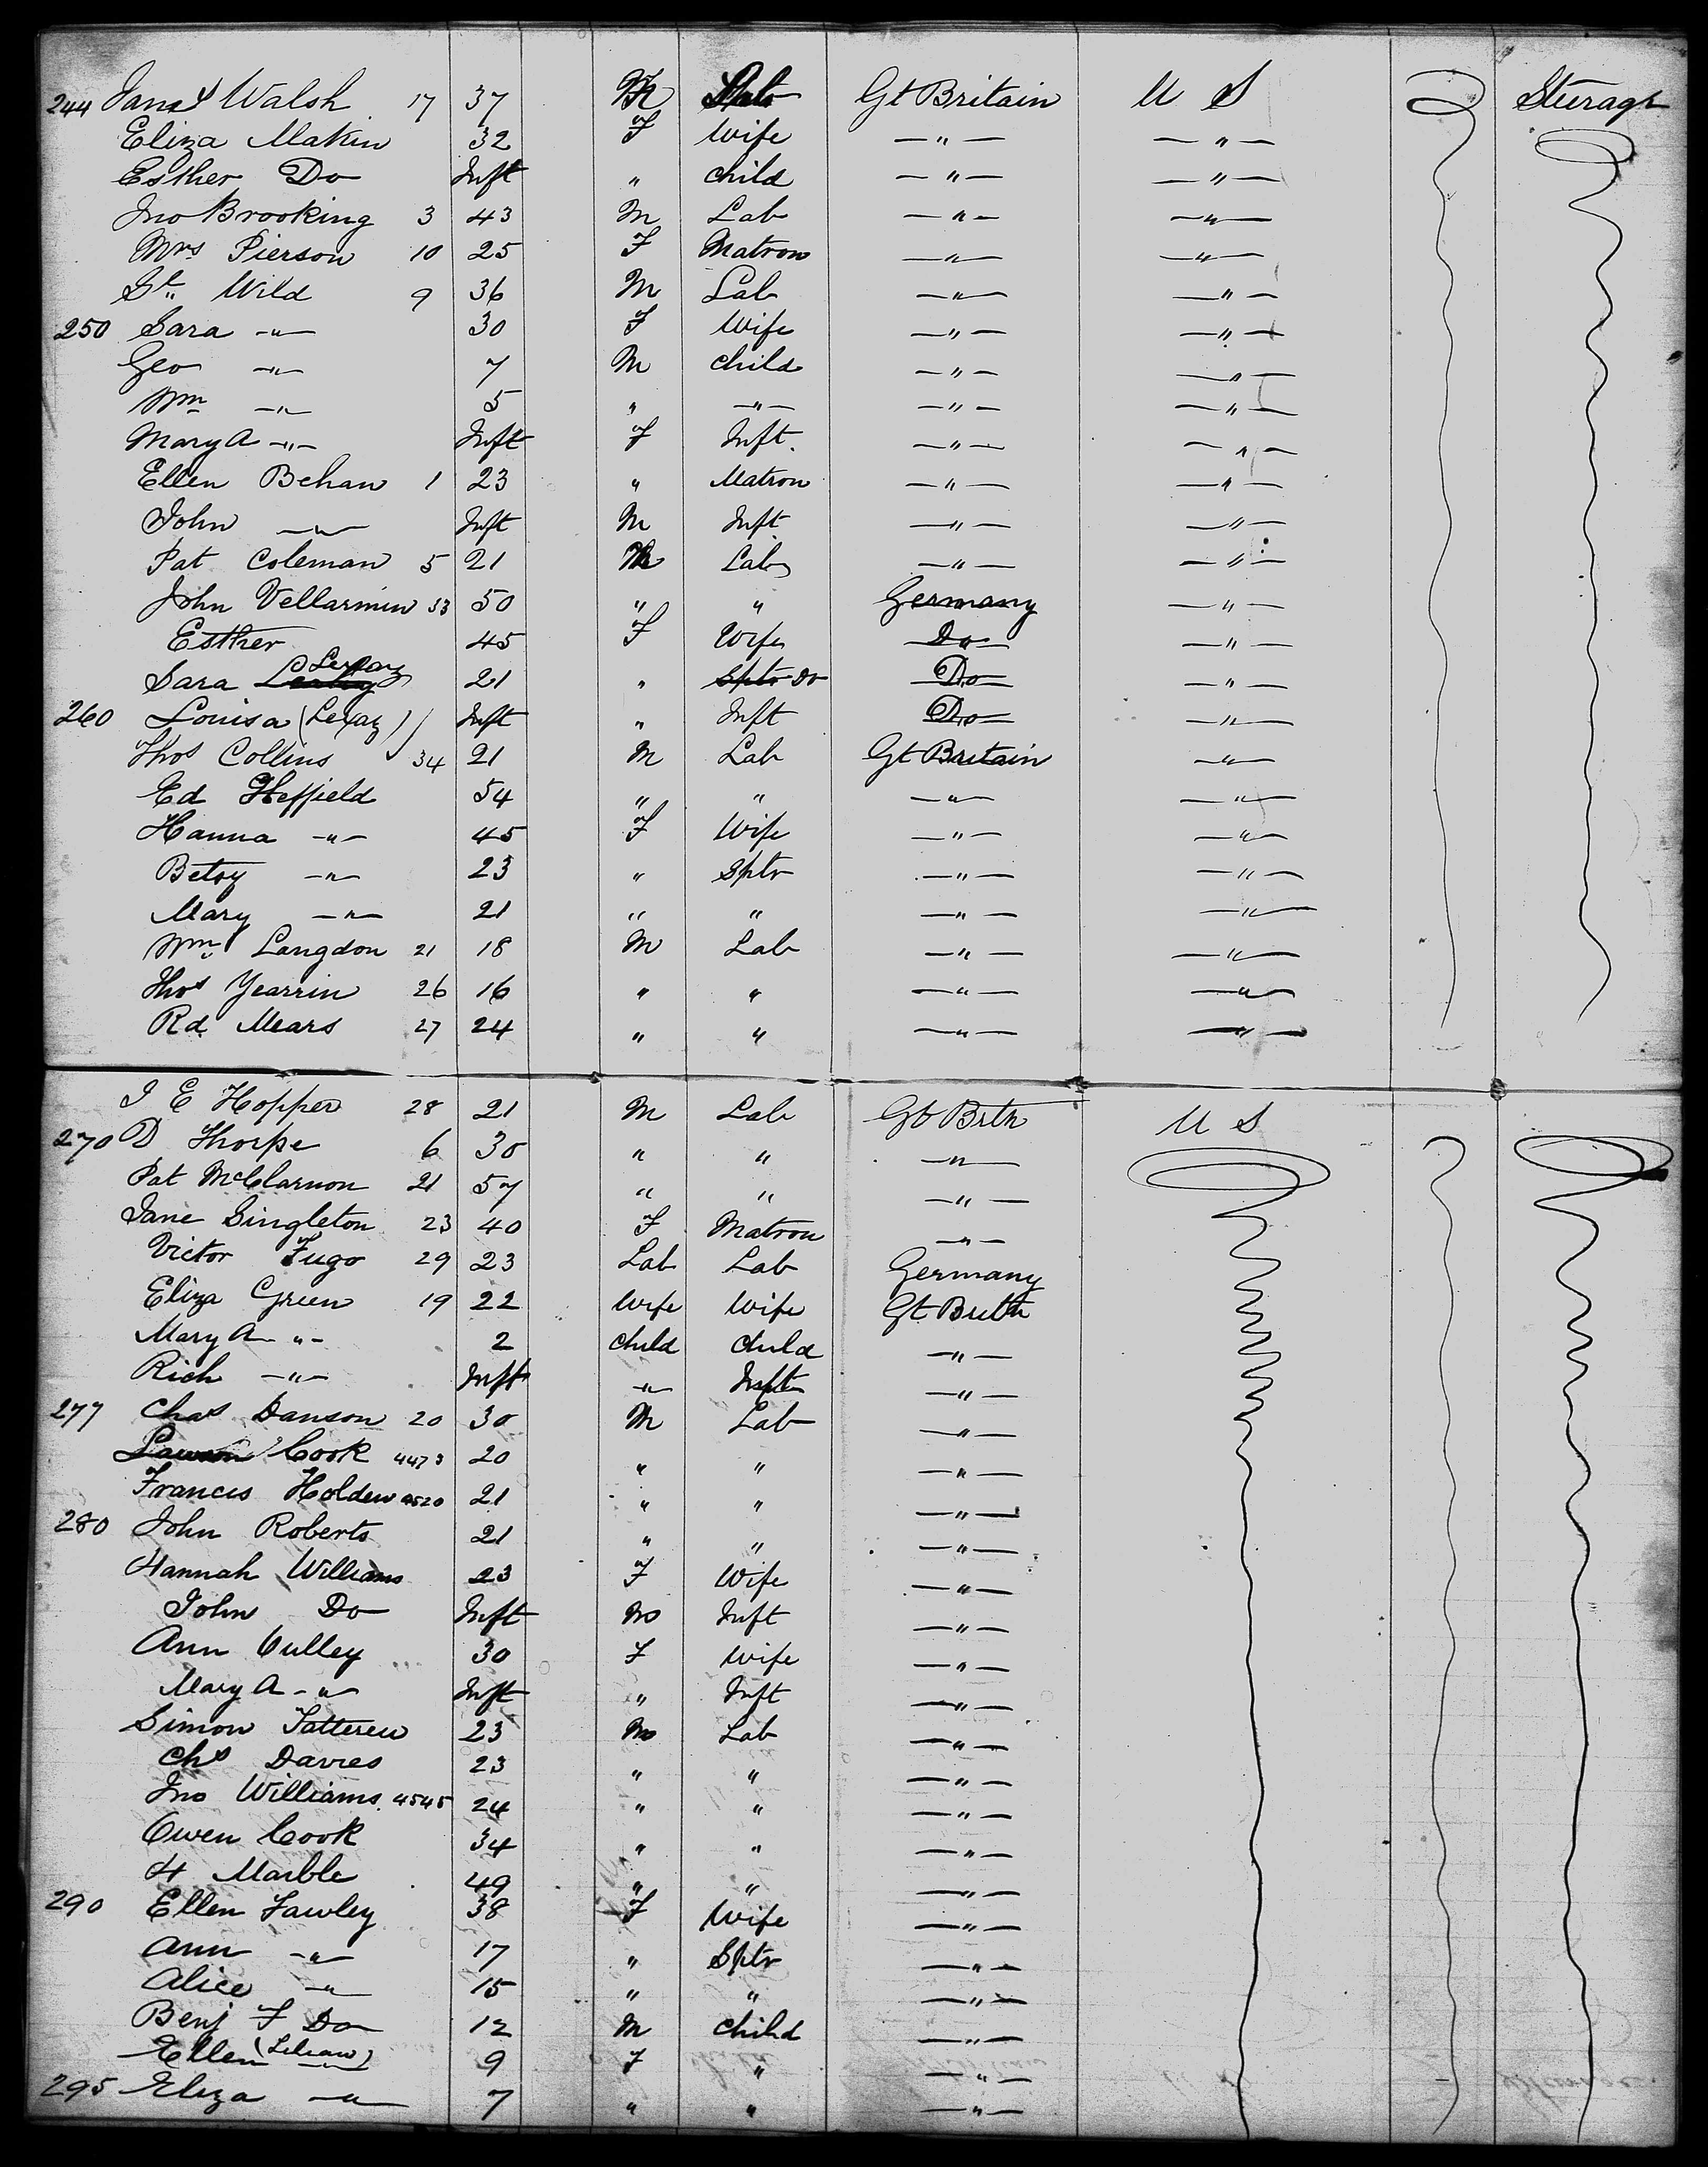 244 Jane Walsh 17 37 Gt Britain U S Sterage
Eliza Makin 32 F Wife —"— —"—
Esther Do Inft " child —"— —"—
Jno Brooking 3 43 M Lab —"— —"—
Mrs Pierson 10 25 F Matron —"— —"—
Wild 9 36 M Lab —"— —"—
250 Sara —"— 30 F Wife —"— —"—
Geo —"— 7 M child —"— —"—
Wm —"— 5 " —"— —"— —"—
Mary A —"— Inft F Inft. —"— —"—
Ellen Behan 1 23 " Matron —"— —"—
John —"— Inft M Inft —"— —"—
Pat Coleman 5 21 M Lab —"— —"—
John Vellarmin 33 50 " " Germany —"—
Esther 45 F Wife Do —"—
Sara 21 " Sptr Do Do —"—
260 Louisa (Lexaz) Inft " Inft Do —"—
Thos Collins 34 21 M Lab Gt Britain —"—
Ed Heffield 54 " " —"— —"—
Hanna —"— 45 F Wife —"— —"—
Betsy —"— 23 " Sptr —"— —"—
Mary —"— 21 " " —"— —"—
Wm Langdon 21 18 M Lab —"— —"—
Thos Yearrin 26 16 " " —"— —"—
Rd Mears 27 24 " " —"— —"—
J E Hopper 28 21 M Lab Gt Brtn U S
270 D Thorpe 6 30 " " —"—
Pat McClarnon 21 57 " " —"—
Jane Singleton 23 40 F Matron —"—
Victor Fugo 29 23 Lab Lab Germany
Eliza Green 19 22 Wife Wife Gt Britn
Mary A —"— 2 child child —"—
Rich —"— Inft —"— Inft —"—
277 Chas Danson 20 30 M Lab —"—
Lawson Cook 4473 20 " " —"—
Francis Holden 4520 21 " " —"—
280 John Roberts 21 " " —"—
Hannah Williams 23 F Wife —"—
John Do Inft M Inft —"—
Ann Culley 30 F Wife —"—
Mary A —"— Inft " Inft —"—
Simon Tatteren 23 M Lab —"—
Chs Davies 23 " " —"—
Jno Williams 4545 24 " " —"—
Owen Cook 34 " " —"—
H Marble 49 " " —"—
290 Ellen Fawley 38 F Wife —"—
Ann —"— 17 " Sptr —"—
Alice —"— 15 " " —"—
Benj F Do 12 M child —"—
Ellen —"— 9 F " —"—
295 Eliza —"— 7 " " —"—